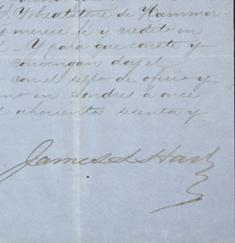 Wheatstone de Hammer
merece fé y credito en
Y para que conste y
convengan doy el
con el sello de oficio y
en Londres a once
ochocientos sesenta y
James L Hart